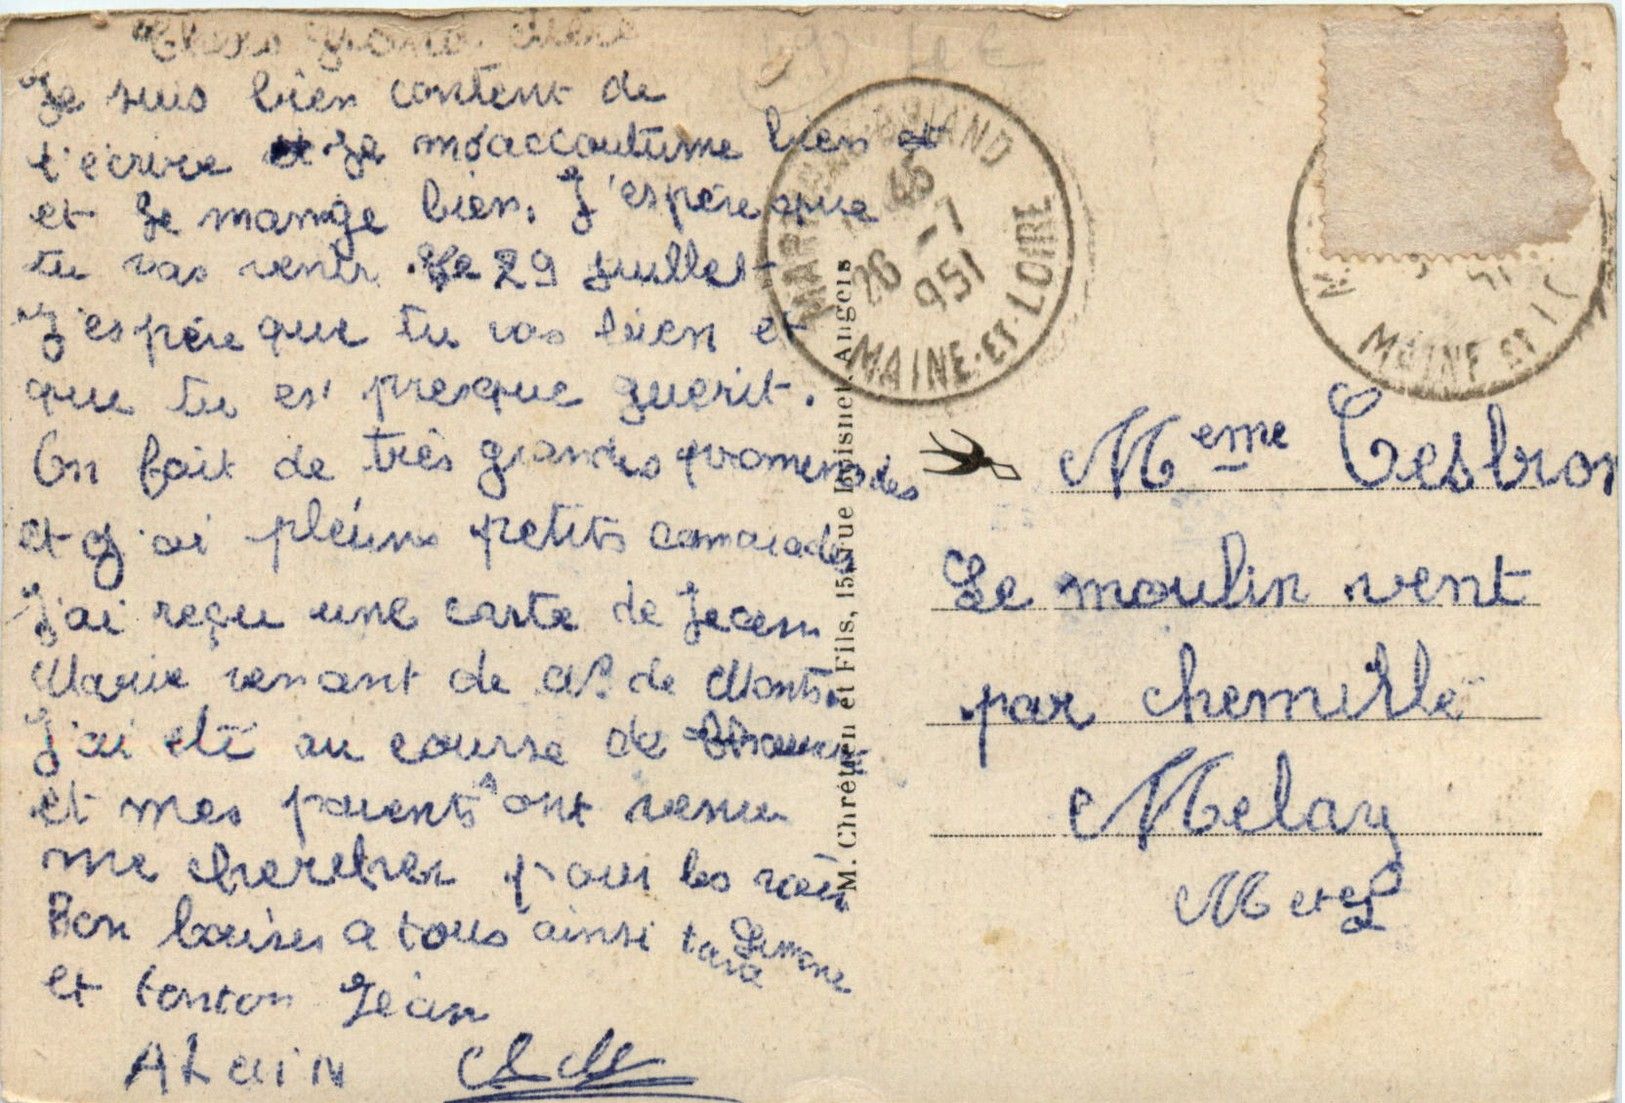 Chère grand mère
Je suis bien content de
t'écrire et Je m'accoutume bien et
et Je mange bien. J'espère que
tu vas venir. Le 29 juillet
J'espère que tu vas bien et
que tu es presque guerit.
On fait de très grandes promenades
et j'ai pleins petits camarades
J'ai reçu une carte de Jean
Marie venant de de Monts.
J'ai été au course de
et mes parents ont venu
me chercher pour les voir
Bon baiser a tous ainsi tata Simone
et tonton Jean
ALAIN
4€
MARTIGNÉ-BRIAND
26 -7
951
MAINE-ET-LOIRE
MAINE ET L
M. Chrétien et Fils, 15, rue Boisnet, Angers
Meme Cesbron
Le moulin vent
par chemillé
Melay
M et L